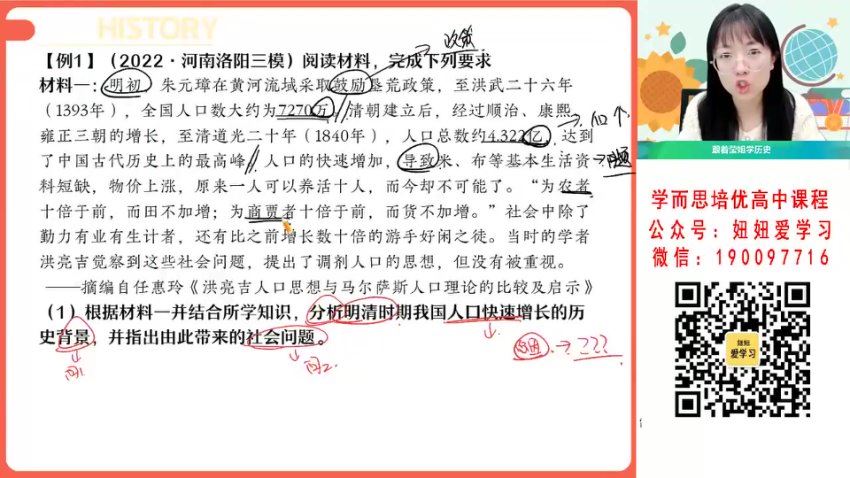 HISTORY
政策
【例1】（2022·河南洛阳三模）阅读材料，完成下列要求
材料一：明初，朱元璋在黄河流域采取鼓励垦荒政策，至洪武二十六年
（1393年），全国人口数大约为7270万。清朝建立后，经过顺治、康熙、
人口↑
雍正三朝的增长，至清道光二十年（1840年），人口总数约4.322亿，达到
了中国古代历史上的最高峰。人口的快速增加，导致米、布等基本生活资
问题
料短缺，物价上涨，原来一人可以养活十人，而今却不可能了。“为农者
十倍于前，而田不加增；为商贾者十倍于前，而货不加增。”社会中除了
勤力有业有生计者，还有比之前增长数十倍的游手好闲之徒。当时的学者
洪亮吉觉察到这些社会问题，提出了调剂人口的思想，但没有被重视。
——摘编自任惠玲《洪亮吉人口思想与马尔萨斯人口理论的比较及启示》
（1）根据材料一并结合所学知识，分析明清时期我国人口快速增长的历
史背景，并指出由此带来的社会问题。
问1
问2.
→ ???
跟着莹姐学历史
学而思培优高中课程
公众号：妞妞爱学习
微信：190097716
妞妞
爱学习